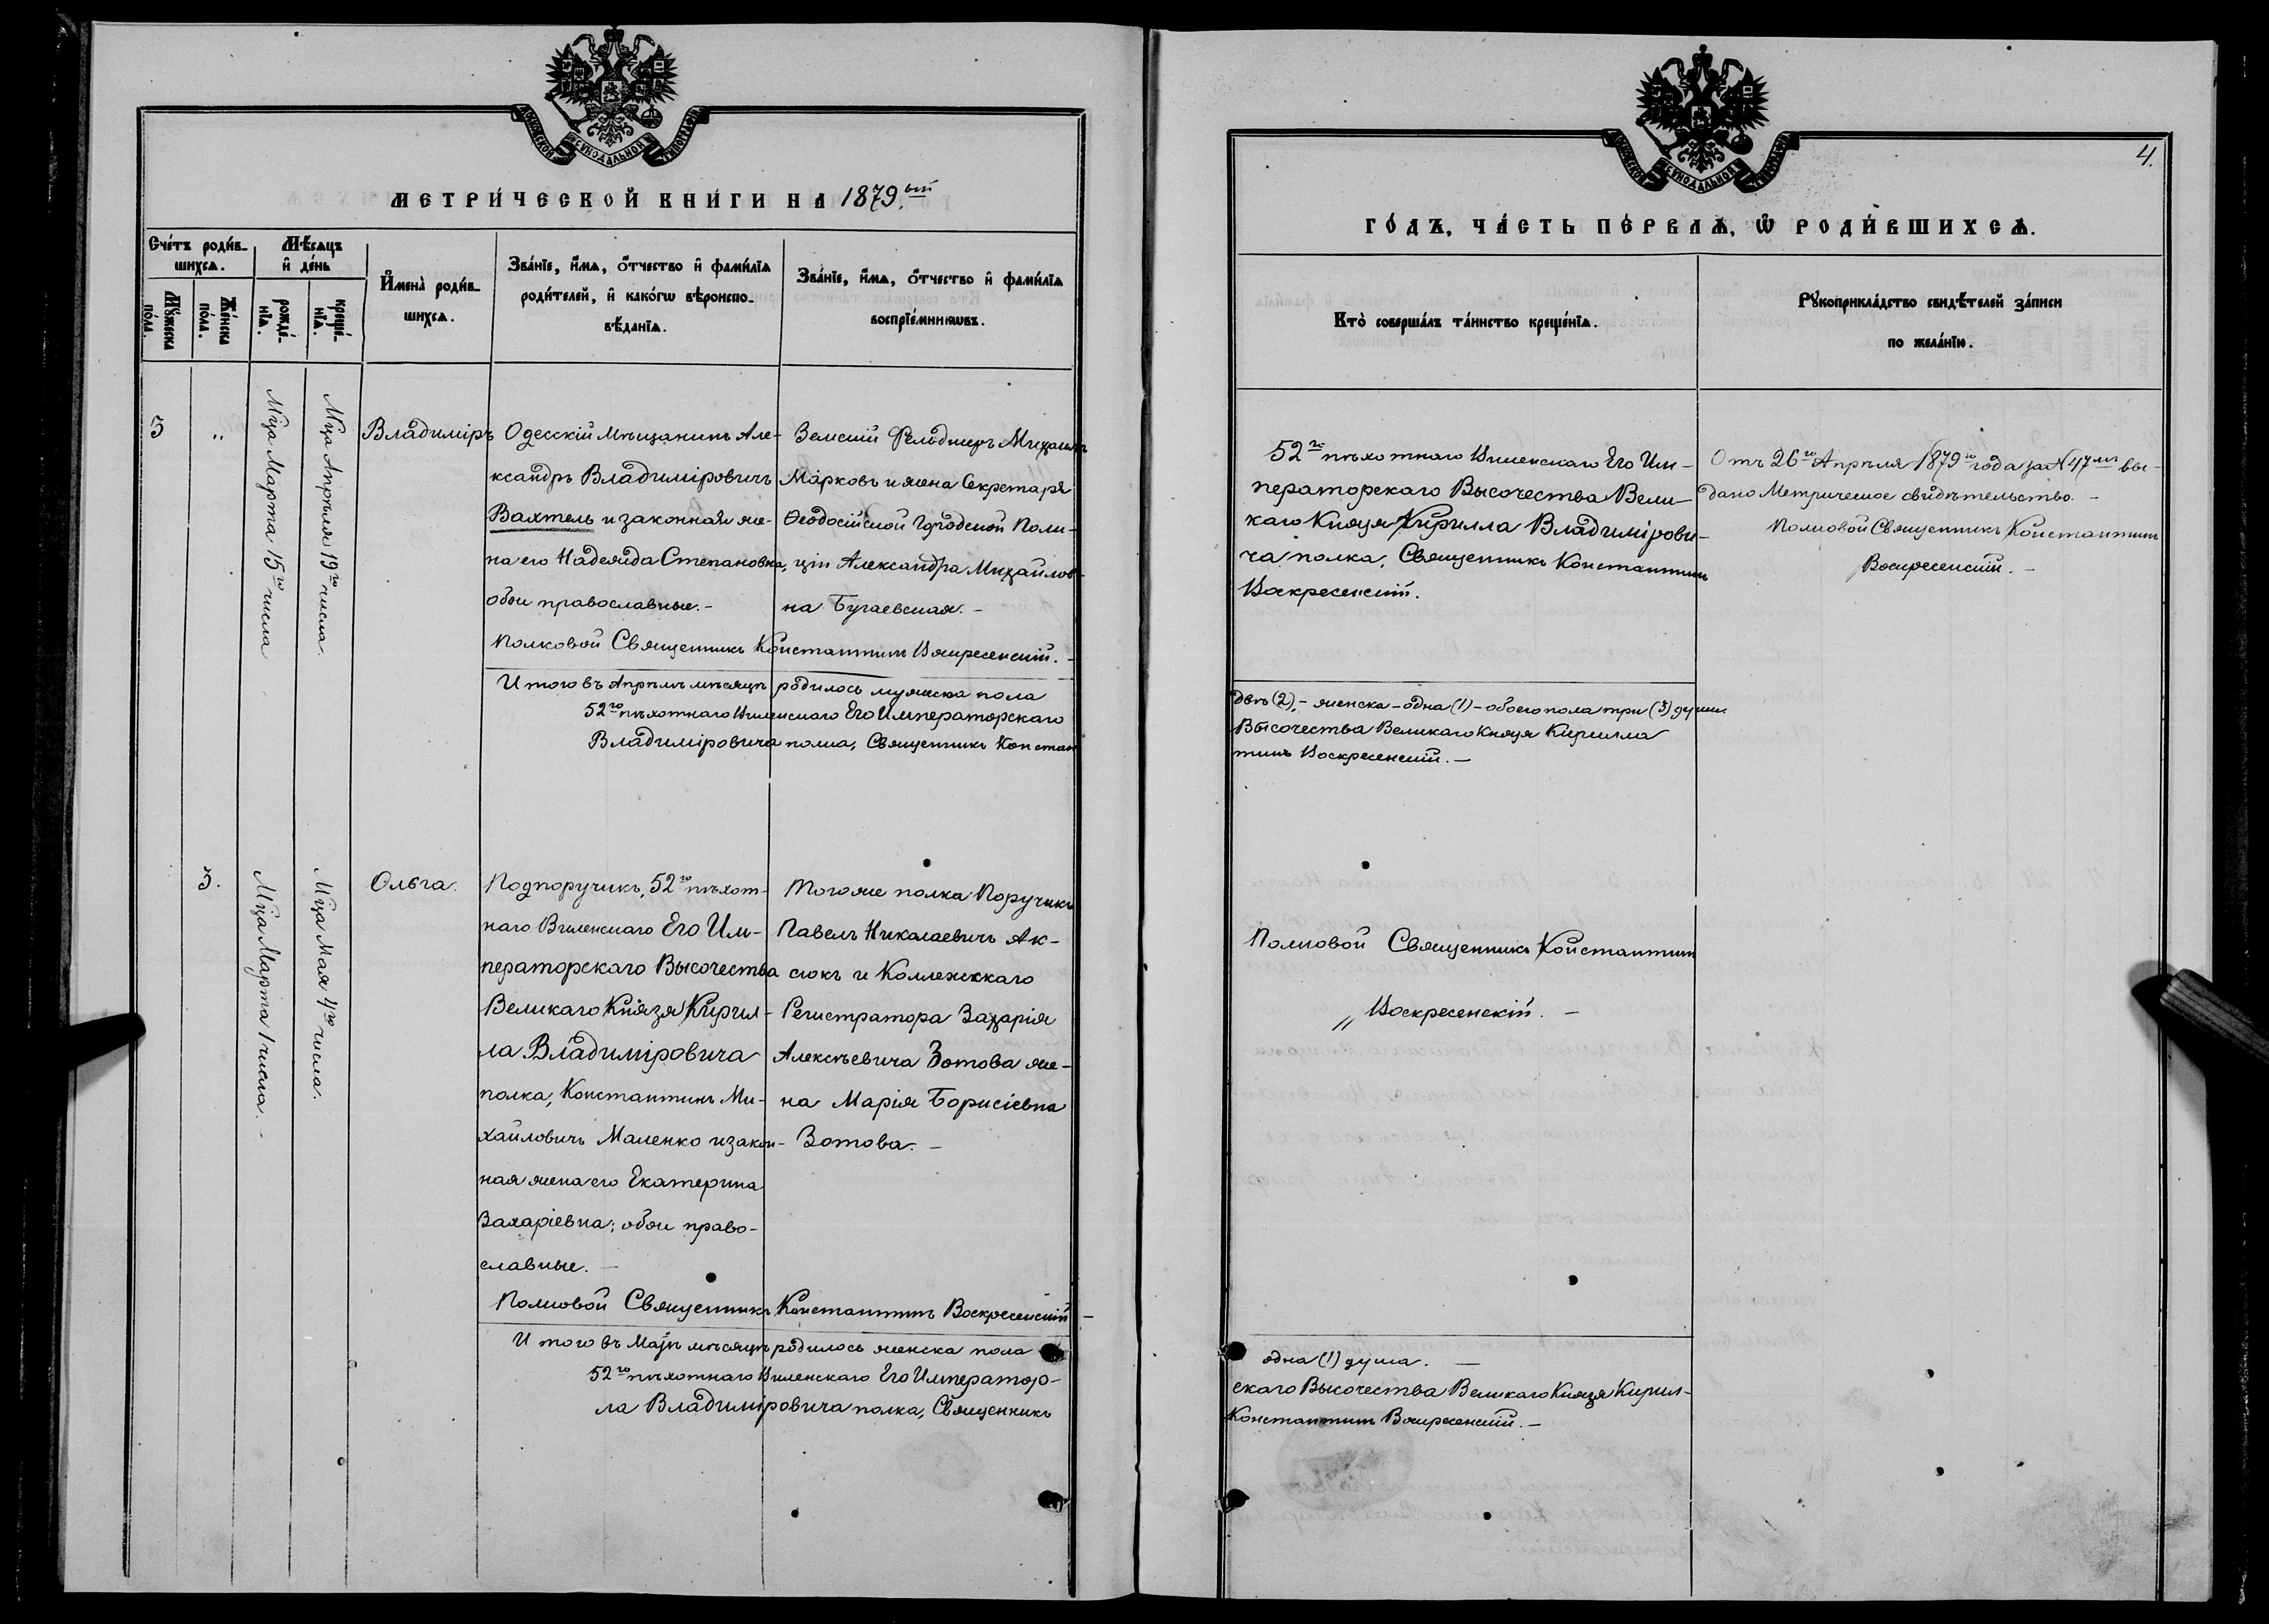 МОСКОВСКОЙ СѴНОДАЛЬНОЙ ТИПОГРАФІИ
МЕТРИ́ЧЕСКОЙ КНИ́ГИ НА 1879.ый
Сче́тъ роди́в-
шихсѧ.
Мѣ́сѧцъ
и҆ де́нь
Мꙋ́жеска по́ла.
Же́нска по́ла.
рожде́-
нїѧ.
креще́-
нїѧ.
И҆мена̀ роди́в-
шихсѧ.
Зва́нїе, и҆́мѧ, ѻ҆́тчество и҆ фами́лїѧ
роди́телей, и҆ како́гѡ вѣроиспо-
вѣ́данїѧ.
Зва́нїе, и҆́мѧ, ѻ҆́тчество и҆ фами́лїѧ
воспрїе́мникѡвъ.
3
"
Мца Марта 15го числа
Мца Апрѣля 19го числа.
Владиміръ
Одесскій Мѣщанинъ Але-
ксандръ Владиміровичъ
Вахтель и законная же-
на его Надежда Степановна,
обои православные.-
Земскій Фельдшеръ Михаилъ
Марковъ и жена Секретаря
Ѳеодосійской Городской Поли-
ціи Александра Михайлов-
на Бугаевская.-
Полковой Священникъ Константинъ Воскресенскій.-
Итого въ Апрѣлѣ мѣсяцѣ родилось мужеска пола
52го пѣхотнаго Виленскаго Его Императорскаго
Владиміровича полка, Священникъ Констан
3.
Мца Марта 1 числа.-
Мца Мая 4го числа.
Ольга.
Подпоручикъ, 52го пѣхот-
наго Виленскаго Его Им-
ператорскаго Высочества
Великаго Князя Кирил-
ла Владиміровича
полка, Константинъ Ми-
хайловичъ Маленко и закон-
ная жена его Екатерина
Захаріевна; обои право-
славные.-
Того же полка Поручикъ
Павелъ Николаевичъ Ак-
сюкъ и Коллежскаго
Регистратора Захарія
Алексѣевича Зотова же-
на Марія Борисіевна
Зотова.-
Полковой Священникъ Константинъ Воскресенскій-
Итого въ Маѣ мѣсяцѣ родилось женска пола
52го пѣхотнаго Виленскаго Его Император-
ла Владиміровича полка, Священникъ
МОСКОВСКОЙ СѴНОДАЛЬНОЙ ТИПОГРАФІИ
4.
ГО́ДЪ, ЧА́СТЬ ПЕ́РВАѦ, Ѡ҆ РОДИ́ВШИХСѦ.
Кто̀ соверша́лъ та́инство креще́нїѧ.
Рꙋкоприкла́дство свидѣ́телей за́писи
по жела́нїю.
52го пѣхотнаго Виленскаго Его Им-
ператорскаго Высочества Вели-
каго Князя Кирилла Владимірови-
ча полка, Священникъ Константинъ
Воскресенскій.
Отъ 26го Апрѣля 1879го года за № 47мъ вы-
дано Метрическое свидѣтельство.-
Полковой Священникъ Константинъ
Воскресенскій.-
двѣ (2),- женска - одна (1) - обоего пола три (3) души
Высочества Великаго Князя Кирилла
тинъ Воскресенскій.-
Полковой Священникъ Константинъ
" Воскресенскій.-
одна (1) душа.-
скаго Высочества Великаго Князя Кирил-
Константинъ Воскресенскій.-